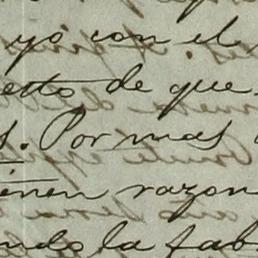 yó con el
etto de que
s. Por mas
ienen razon
ndo la fab